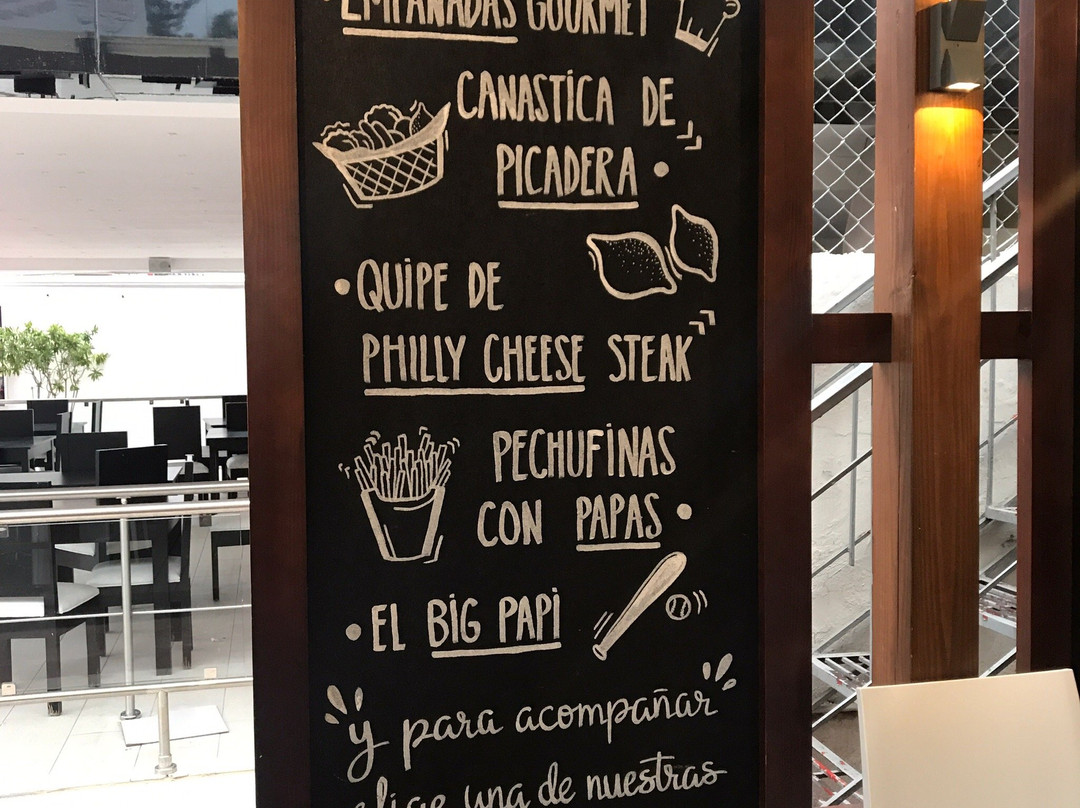 EMPANADAS GOURMET
CANASTICA DE
PICADERA
QUIPE DE
PHILLY CHEESE STEAK
PECHUFINAS
CON PAPAS
EL BIG PAPI
y para acompañar
elige una de nuestras